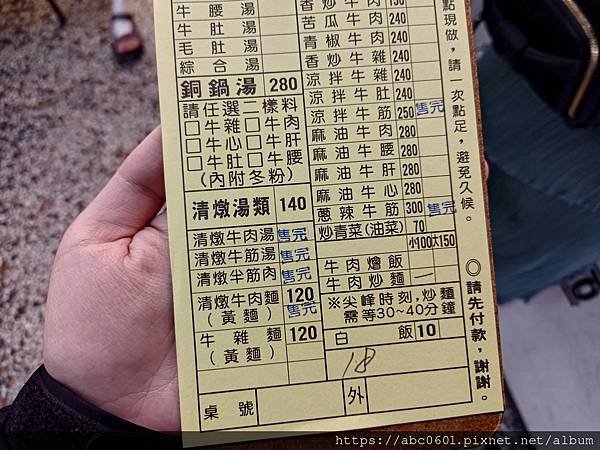 牛腰湯
牛肚湯
毛肚湯
綜合湯
銅鍋湯 280
請任選二樣料
□牛雜□牛肉
□牛心□牛肝
□牛肚□牛腰
(內附冬粉)
清燉湯類 140
清燉牛肉湯 售完
清燉牛筋湯 售完
清燉半筋肉 售完
清燉牛肉麵 120
(黃麵) 售完
牛雜麵 120
(黃麵)
桌號
苦瓜牛肉 240
青椒牛肉 240
香炒牛雜 240
涼拌牛雜 240
涼拌牛肚 240
涼拌牛筋 250 售完
麻油牛肉 280
麻油牛腰 280
麻油牛肝 280
麻油牛心 280
蔥辣牛筋 300 售完
炒青菜(油菜) 70
小100大150
牛肉燴飯
牛肉炒麵 一
※尖峰時刻,炒麵
需等30~40分鐘
白飯 10
18
外
點現做,請一次點足,避免久候。
◎請先付款,謝謝。
https://abc0601.pixnet.net/album